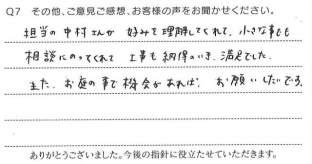 Q7 その他、ご意見ご感想、お客様の声をお聞かせください。
担当の中村さんが 好みを理解してくれて、小さな事にも
相談にのってくれて 工事も納得のいき、満足でした。
また、お庭の事で機会があれば、お願いしたいです。
ありがとうございました。今後の指針に役立たせていただきます。